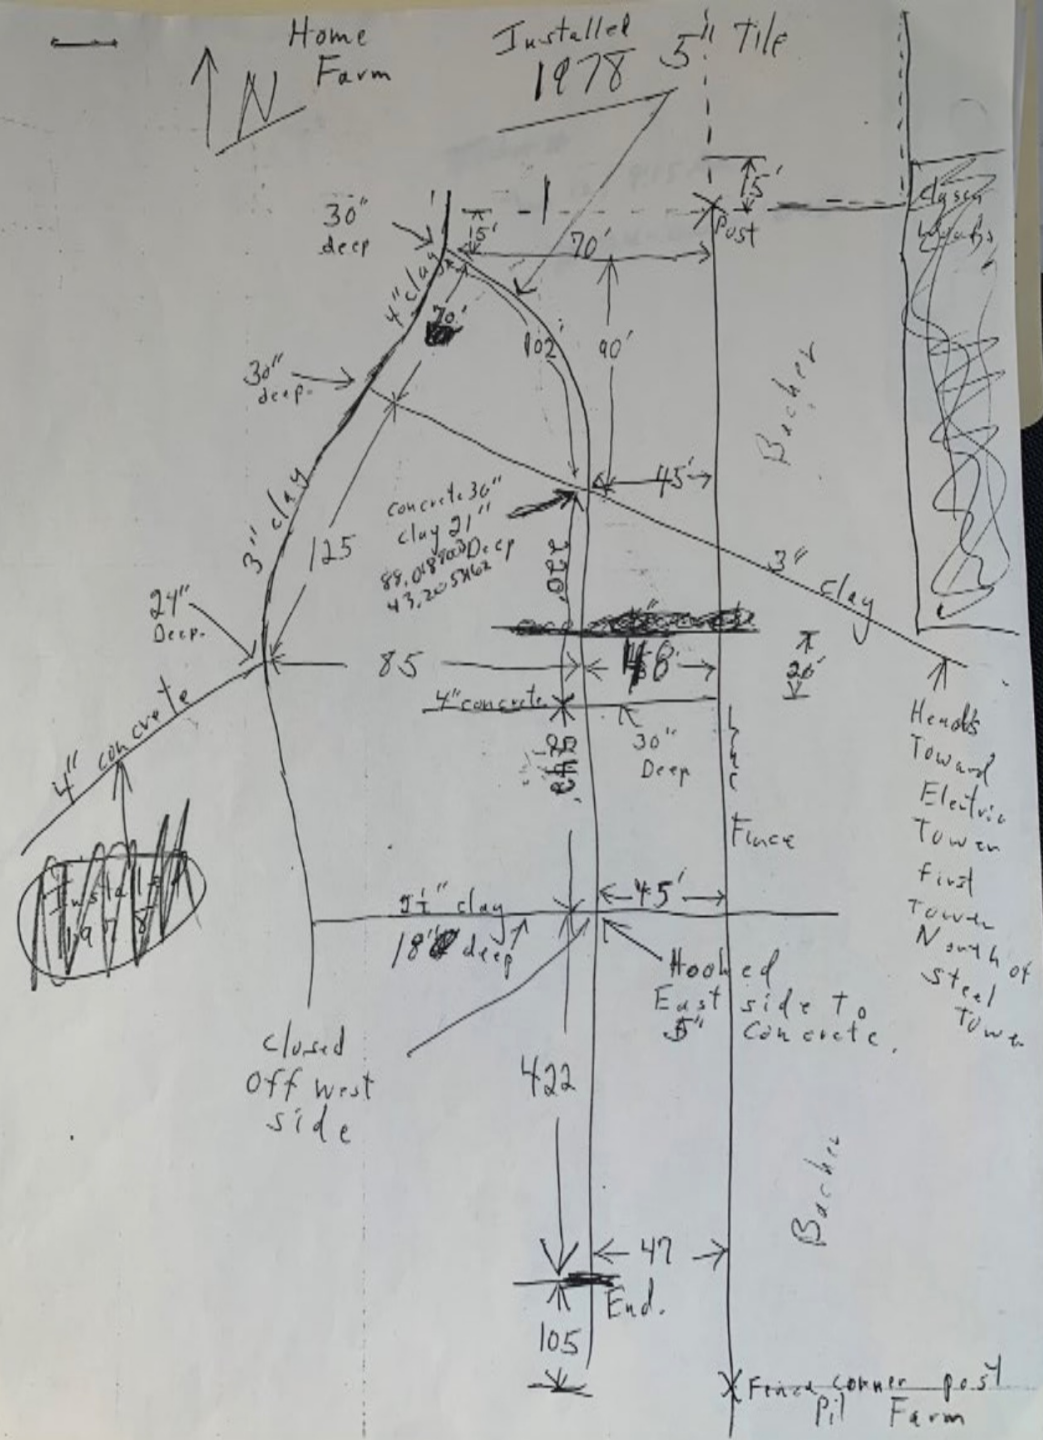 Home
Farm
N
Installed
1978
5" Tile
15'
Post
30"
deep
15'
70'
4" clay
70'
102'
90'
30"
deep.
Bacher
45'
concrete 30"
clay 21"
Deep
3" clay
125
220'
3" clay
24"
Deep.
85
48'
20'
4" concrete
30"
Deep
4" concrete
Line
Fence
Heads
Toward
Electric
Tower
First
Tower
North of
Steel
Tower
45'
clay
18" deep
Hooked
East side To
5" Concrete.
Closed
Off west
side
422
Bacher
47
End.
105
Fence corner post
Farm